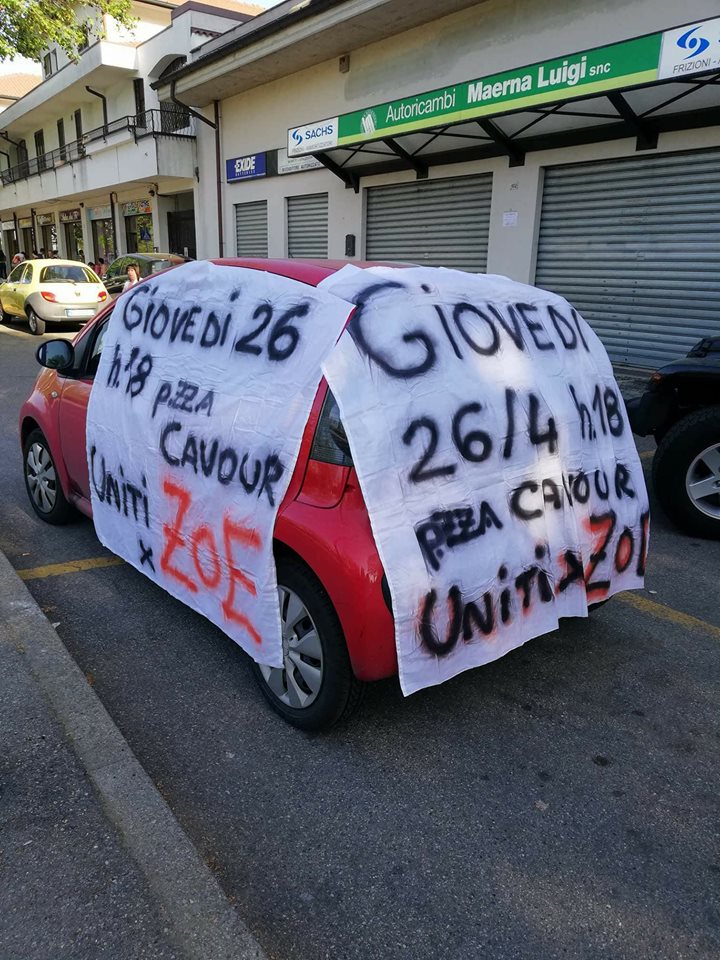 SACHS
Autoricambi Maerna Luigi snc
SACHS
FRIZIONI - A
EXIDE
GIOVEDÌ 26
h.18 p.ZZA
CAVOUR
UNiTi
x ZOE
GIOVEDÌ
26/4 h.18
p.ZZA CAVOUR
UNiTi x ZOE